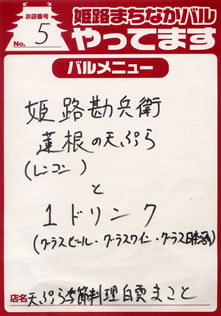 お店番号
No. 5
姫路まちなかバル
やってます
バルメニュー
姫路勘兵衛
蓮根の天ぷら
(レンコン)
と
1ドリンク
(グラスビール・グラスワイン・グラス日本酒)
店名 天ぷら季節料理白雲まこと